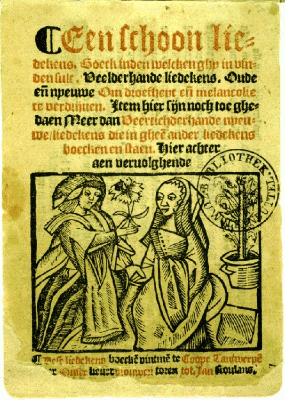 Een schoon lie-
dekens. Boeck inden welcken ghy in vin-
den sult. Veelderhande liedekens. Oude
en̄ nyeuwe Om droefheyt en̄ melancolie
te verdrijuen. Item hier sijn noch toe ghe-
daen Meer dan Veertichderhande nyeu-
we liedekens die in gheē ander liedekens
boecken en staen. Hier achter
aen veruolghende
BIBLIOTHEK
Dese liedekens boeckē vintmē te Coope Tantwerpē
Onser vrouwen toren tot Jan Roulans.